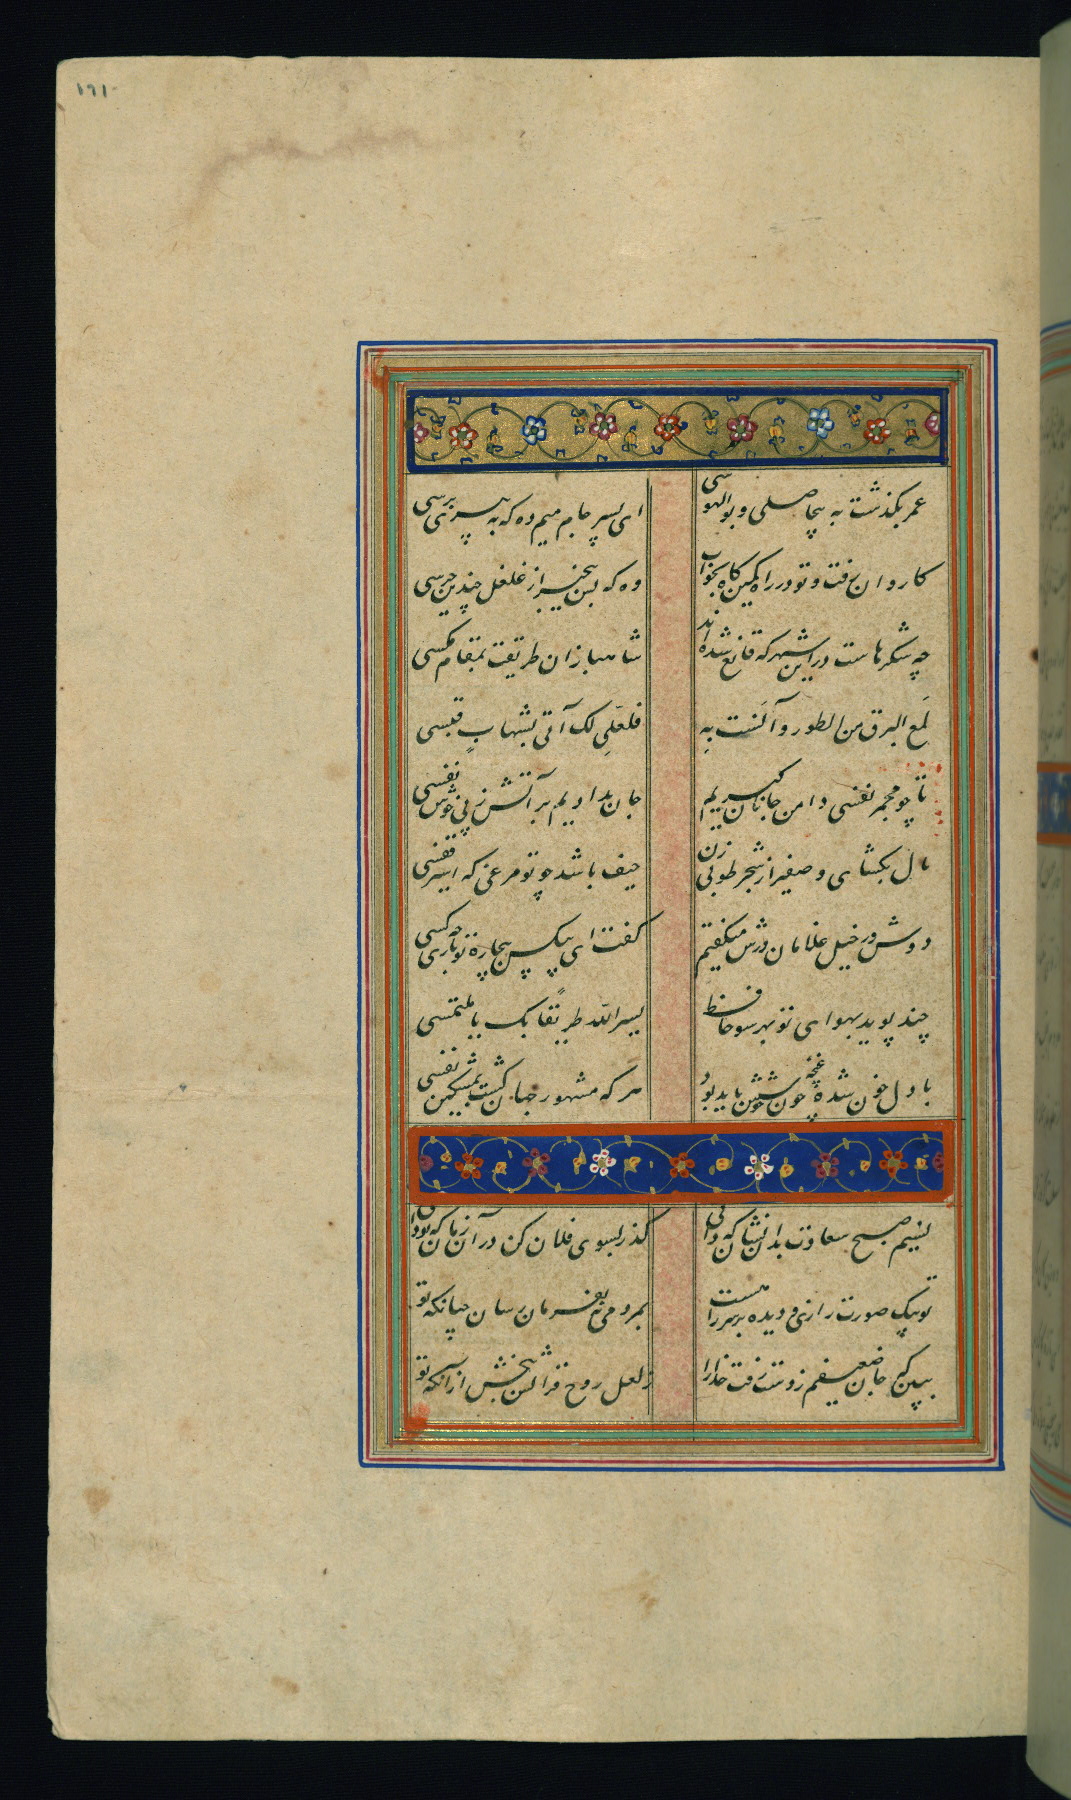 ١٩١
عمر بگذشت به بیحاصلی و بوالهوسی
ای پسر جام میم ده که به پیری برسی
کاروان رفت و تو در راه کمین گاه بخواب
وه که بس بیخبر از غلغل چندین جرسی
چه شکرهاست در این شهر که قانع شده‌اند
شاهبازان طریقت بمقام مکسی
لمع البرق من الطور و آنست به
فلعلی لک آتی بشهاب قبسی
تا چو مجمر نفسی دامن جانان گیریم
جان نهادیم بر آتش ز پی خوش نفسی
بال بکشای و صفیر از شجر طوبی زن
حیف باشد چو تو مرغی که اسیر قفسی
دوش در خیل غلامان درش میکفتم
کفت ای بیکس بیچاره تو باری چه کسی
چند پوید بهوای تو بهر سو حافظ
یسر الله طریقا بک یا ملتمسی
با دل خون شده چون غنچه خوشش باید بود
هر که مشهور جهان کشت بمشکین نفسی
نسیم صبح سعادت بدان نشان که تو دانی
کذر بسوی فلان کن در آن زمان که تو دانی
تو پیک صورت رازی و دیده بر سر راهست
بمردمی نه بفرمان برسان چنانکه تو
ببین که جان ضعیفم ز دست رفت خدا را
ز لعل روح فزایش ببخش از آنکه تو